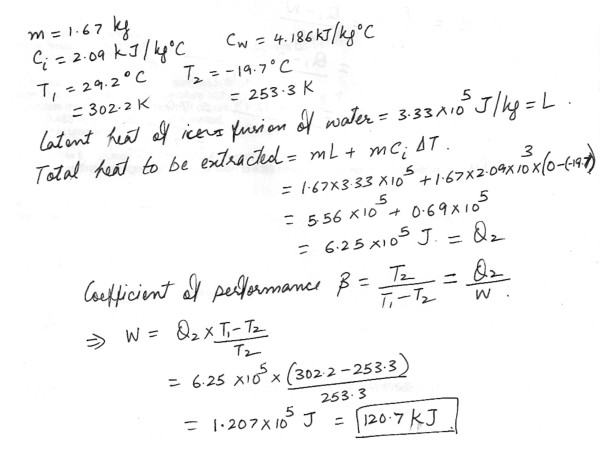 m = 1.67 kg
Ci = 2.09 kJ/kg°C Cw = 4.186kJ/kg°C
T1 = 29.2°C T2 = -19.7°C
= 302.2 K = 253.3 K
Latent heat of fusion of water = 3.33×10^5 J/kg = L.
Total heat to be extracted = mL + mCi ΔT.
= 1.67×3.33×10^5 + 1.67×2.09×10^3×(0-(-19.7))
= 5.56×10^5 + 0.69×10^5
= 6.25×10^5 J. = Q2
Coefficient of performance β = T2/(T1-T2) = Q2/W.
⇒ W = Q2 × (T1-T2)/T2
= 6.25 ×10^5 × (302.2-253.3)/253.3
= 1.207×10^5 J = 120.7 KJ